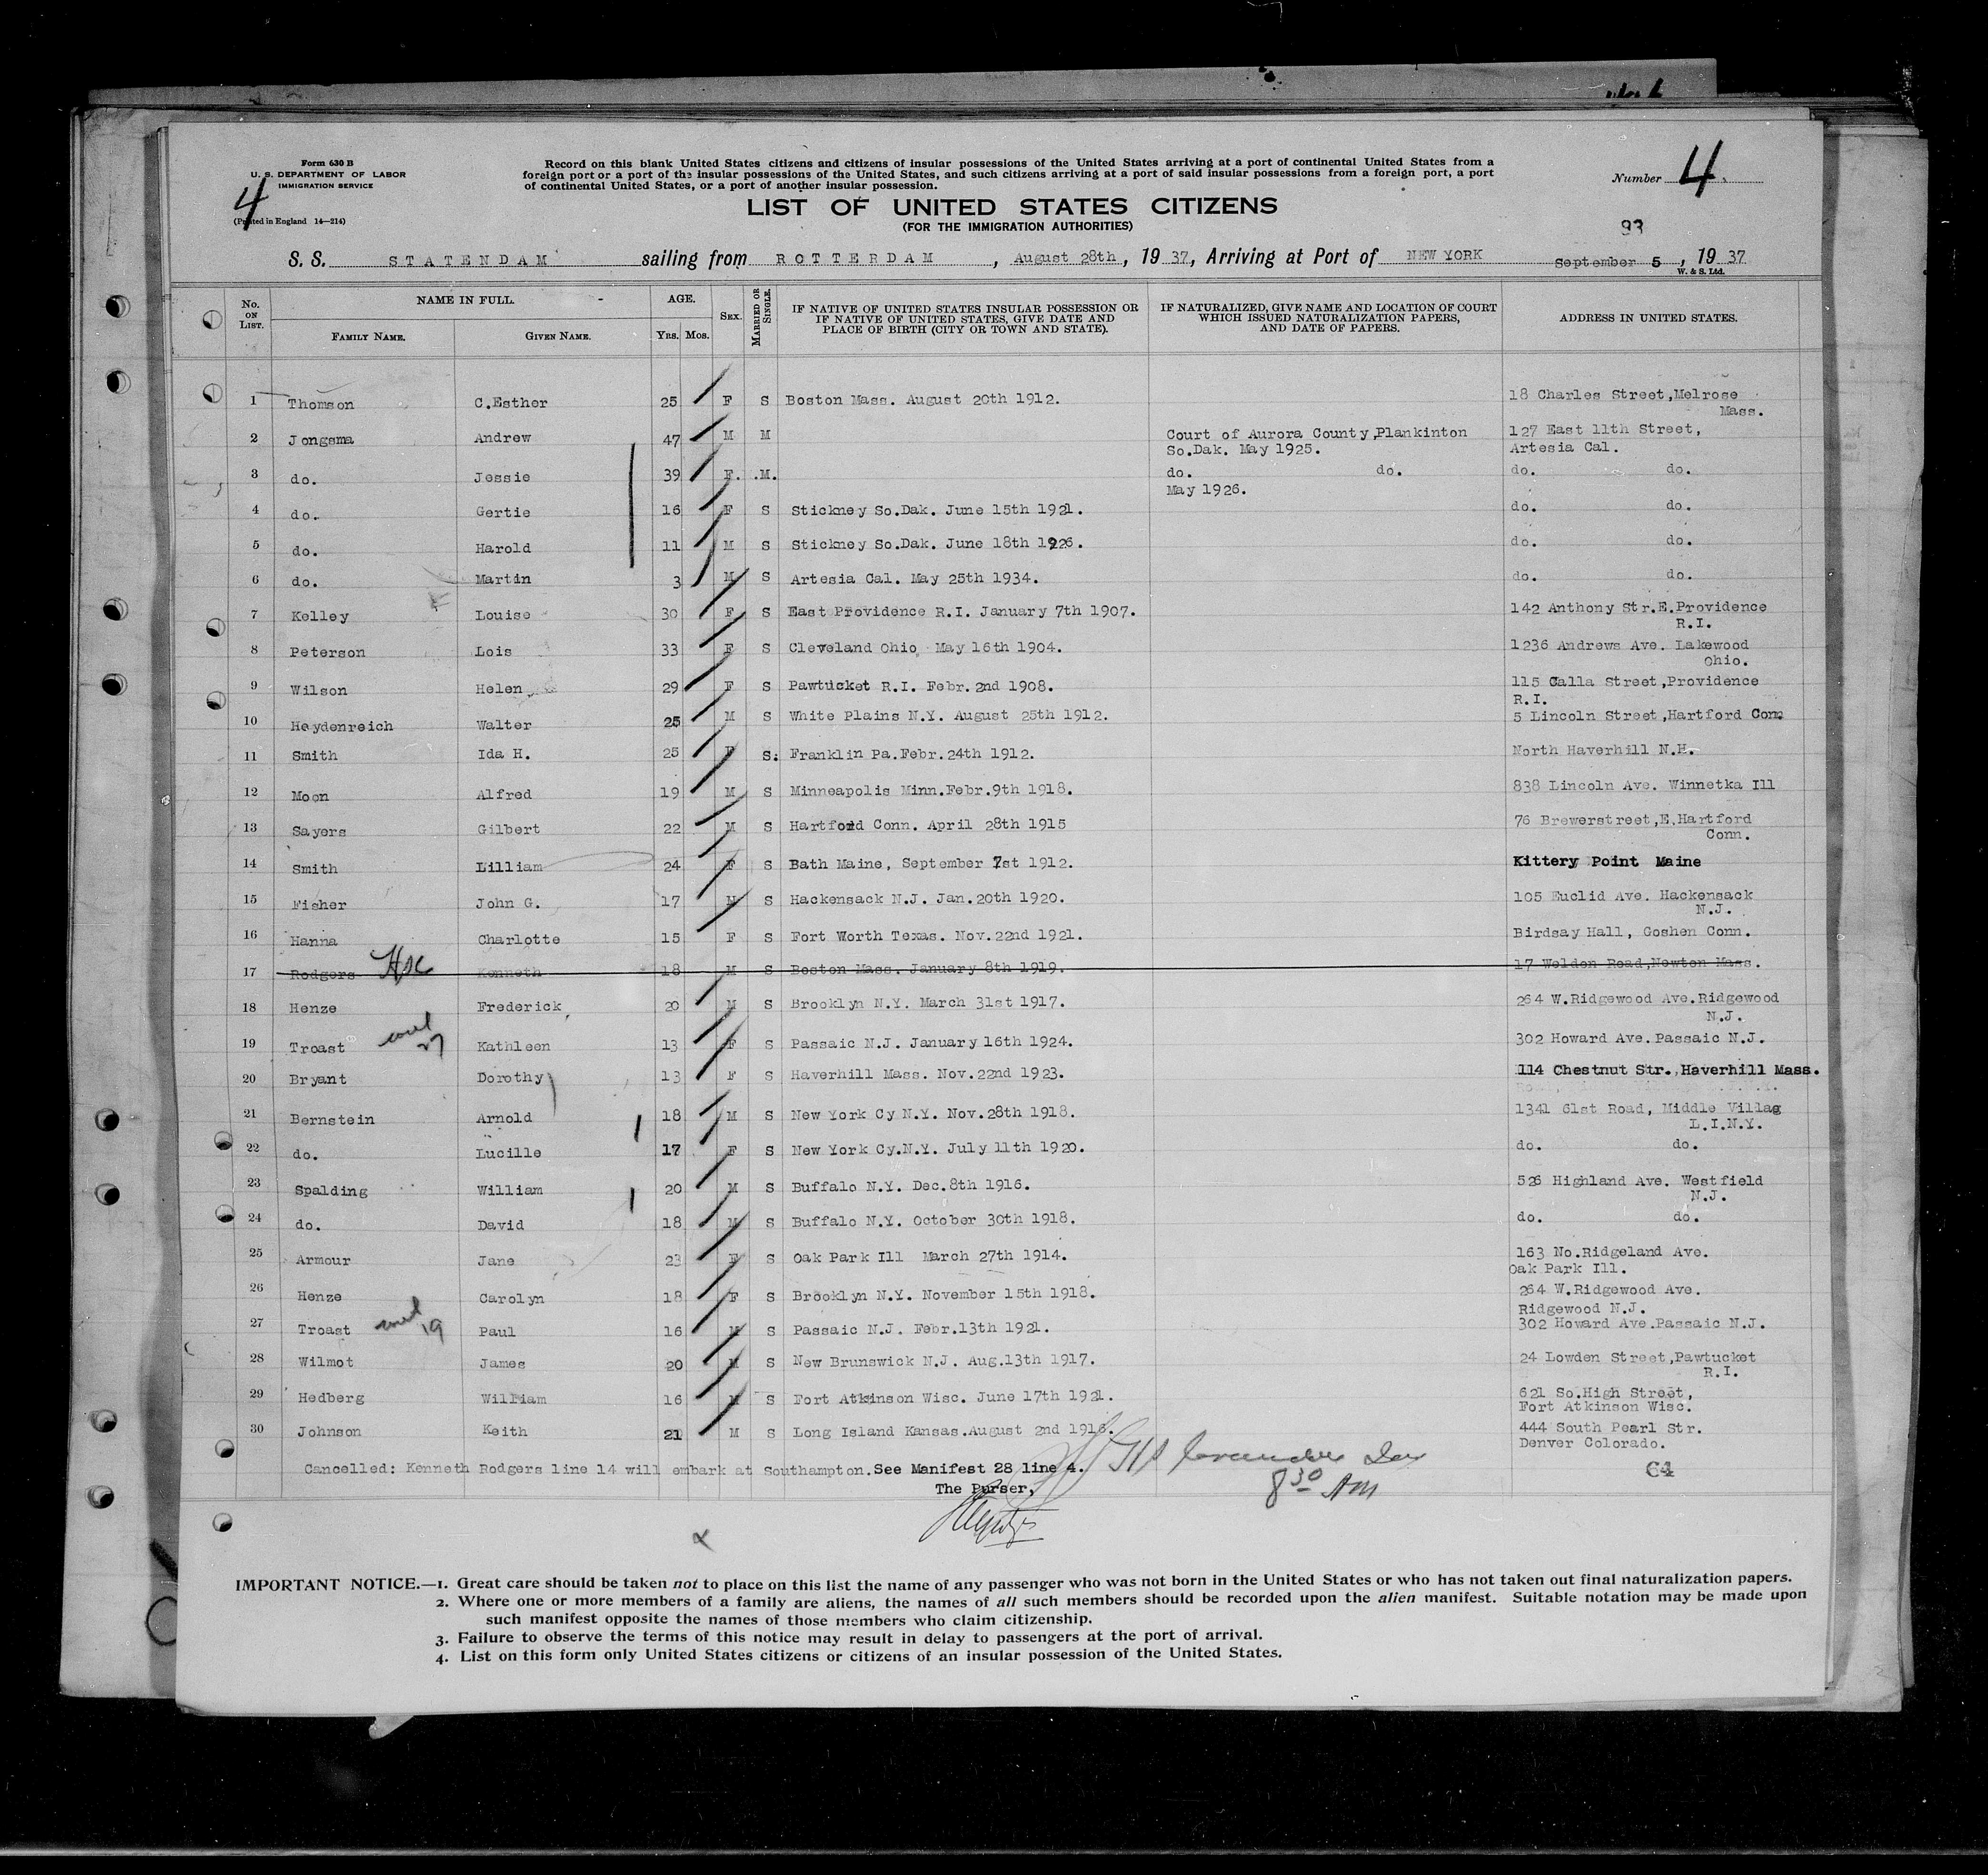 Form 630 B
U. S. DEPARTMENT OF LABOR
IMMIGRATION SERVICE
4
(Printed in England 14—214)
Record on this blank United States citizens and citizens of insular possessions of the United States arriving at a port of continental United States from a
foreign port or a port of the insular possessions of the United States, and such citizens arriving at a port of said insular possessions from a foreign port, a port
of continental United States, or a port of another insular possession.
Number 4.
LIST OF UNITED STATES CITIZENS
(FOR THE IMMIGRATION AUTHORITIES)
93
S. S. STATENDAM sailing from ROTTERDAM, August 28th, 1937, Arriving at Port of NEW YORK September 5, 1937
W. & S. Ltd.
No. ON LIST. NAME IN FULL. AGE. SEX. MARRIED OR SINGLE. IF NATIVE OF UNITED STATES INSULAR POSSESSION OR IF NATIVE OF UNITED STATES, GIVE DATE AND PLACE OF BIRTH (CITY OR TOWN AND STATE). IF NATURALIZED, GIVE NAME AND LOCATION OF COURT WHICH ISSUED NATURALIZATION PAPERS, AND DATE OF PAPERS. ADDRESS IN UNITED STATES.
FAMILY NAME. GIVEN NAME. YRS. MOS.
1 Thomson C.Esther 25 F S Boston Mass. August 20th 1912. 18 Charles Street,Melrose
Mass.
2 Jongsma Andrew 47 M M Court of Aurora County,Plankinton 127 East 11th Street,
So.Dak. May 1925. Artesia Cal.
3 do. Jessie 39 F. .M. do. do. do. do.
May 1926.
4 do. Gertie 16 F S Stickney So.Dak. June 15th 1921. do. do.
5 do. Harold 11 M S Stickney So.Dak. June 18th 1926. do. do.
6 do. Martin 3 M S Artesia Cal. May 25th 1934. do. do.
7 Kelley Louise 30 F S East Providence R.I. January 7th 1907. 142 Anthony Str.E.Providence
R.I.
8 Peterson Lois 33 F S Cleveland Ohio May 16th 1904. 1236 Andrews Ave. Lakewood
Ohio.
9 Wilson Helen 29 F S Pawtucket R.I. Febr. 2nd 1908. 115 Calla Street,Providence
R.I.
10 Heydenreich Walter 25 M S White Plains N.Y. August 25th 1912. 5 Lincoln Street,Hartford Conn
11 Smith Ida H. 25 F S: Franklin Pa.Febr.24th 1912. North Haverhill N.H.
12 Moon Alfred 19 M S Minneapolis Minn.Febr.9th 1918. 838 Lincoln Ave. Winnetka Ill
13 Sayers Gilbert 22 M S Hartford Conn. April 28th 1915 76 Brewerstreet,E.Hartford
Conn.
14 Smith Lilliam 24 F S Bath Maine, September 1st 1912. Kittery Point Maine
15 Fisher John G. 17 M S Hackensack N.J. Jan.20th 1920. 105 Euclid Ave. Hackensack
N.J.
16 Hanna Charlotte 15 F S Fort Worth Texas. Nov.22nd 1921. Birdsay Hall, Goshen Conn.
17 Rodgers Kenneth 18 M S Boston Mass. January 8th 1919. 17 Weldon Road,Newton Mass.
18 Henze Frederick 20 M S Brooklyn N.Y. March 31st 1917. 264 W.Ridgewood Ave.Ridgewood
N.J.
19 Troast 27 Kathleen 13 F S Passaic N.J. January 16th 1924. 302 Howard Ave.Passaic N.J.
20 Bryant Dorothy 13 F S Haverhill Mass. Nov.22nd 1923. 114 Chestnut Str.,Haverhill Mass.
21 Bernstein Arnold 18 M S New York Cy N.Y. Nov.28th 1918. 1341 61st Road, Middle Villag
L.I.N.Y.
22 do. Lucille 17 F S New York Cy.N.Y. July 11th 1920. do. do.
23 Spalding William 20 M S Buffalo N.Y. Dec.8th 1916. 526 Highland Ave. Westfield
N.J.
24 do. David 18 M S Buffalo N.Y. October 30th 1918. do. do.
25 Armour Jane 23 F S Oak Park Ill March 27th 1914. 163 No.Ridgeland Ave.
Oak Park Ill.
26 Henze Carolyn 18 F S Brooklyn N.Y. November 15th 1918. 264 W.Ridgewood Ave.
Ridgewood N.J.
27 Troast 19 Paul 16 M S Passaic N.J. Febr.13th 1921. 302 Howard Ave.Passaic N.J.
28 Wilmot James 20 M S New Brunswick N.J. Aug.13th 1917. 24 Lowden Street,Pawtucket
R.I.
29 Hedberg William 16 M S Fort Atkinson Wisc. June 17th 1921. 621 So.High Street,
Fort Atkinson Wisc.
30 Johnson Keith 21 M S Long Island Kansas.August 2nd 1916. 444 South Pearl Str.
Denver Colorado.
Cancelled: Kenneth Rodgers line 14 will embark at Southampton.See Manifest 28 line 4.
64
The Purser,
8 30 AM
IMPORTANT NOTICE.—1. Great care should be taken not to place on this list the name of any passenger who was not born in the United States or who has not taken out final naturalization papers.
2. Where one or more members of a family are aliens, the names of all such members should be recorded upon the alien manifest. Suitable notation may be made upon
such manifest opposite the names of those members who claim citizenship.
3. Failure to observe the terms of this notice may result in delay to passengers at the port of arrival.
4. List on this form only United States citizens or citizens of an insular possession of the United States.